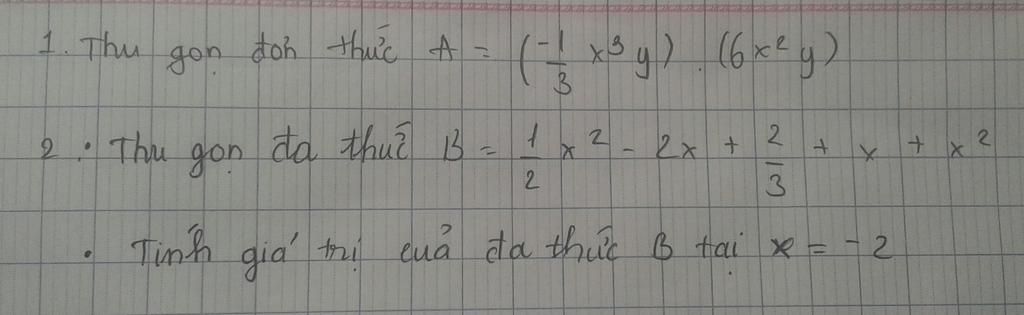 1. Thu gọn đơn thức A = (-1/3 x³y) . (6x²y)
2. • Thu gọn đa thức B = 1/2 x² - 2x + 2/3 + x + x²
• Tính giá trị của đa thức B tại x = -2